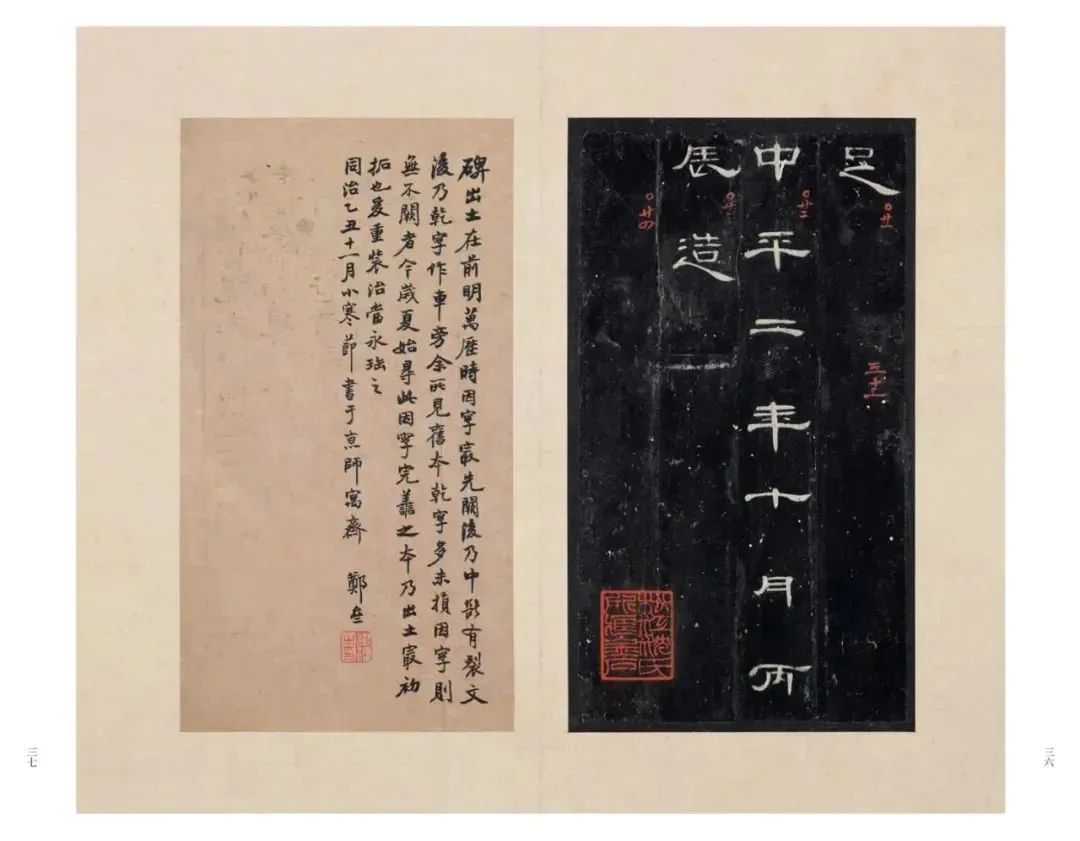 足
中平二年十月丙
辰造
〇廿二
〇廿四
三十一
三六
碑出土在前明萬歷時因字最先闕後乃中斷有裂文
後乃乾字作車旁余所見舊本乾字多未損因字則
無不闕者今歲夏始尋此因字完善之本乃出土最初
拓也爰重裝治當永珤之
同治乙丑十一月小寒節書于京師寓齋 鄭
三七